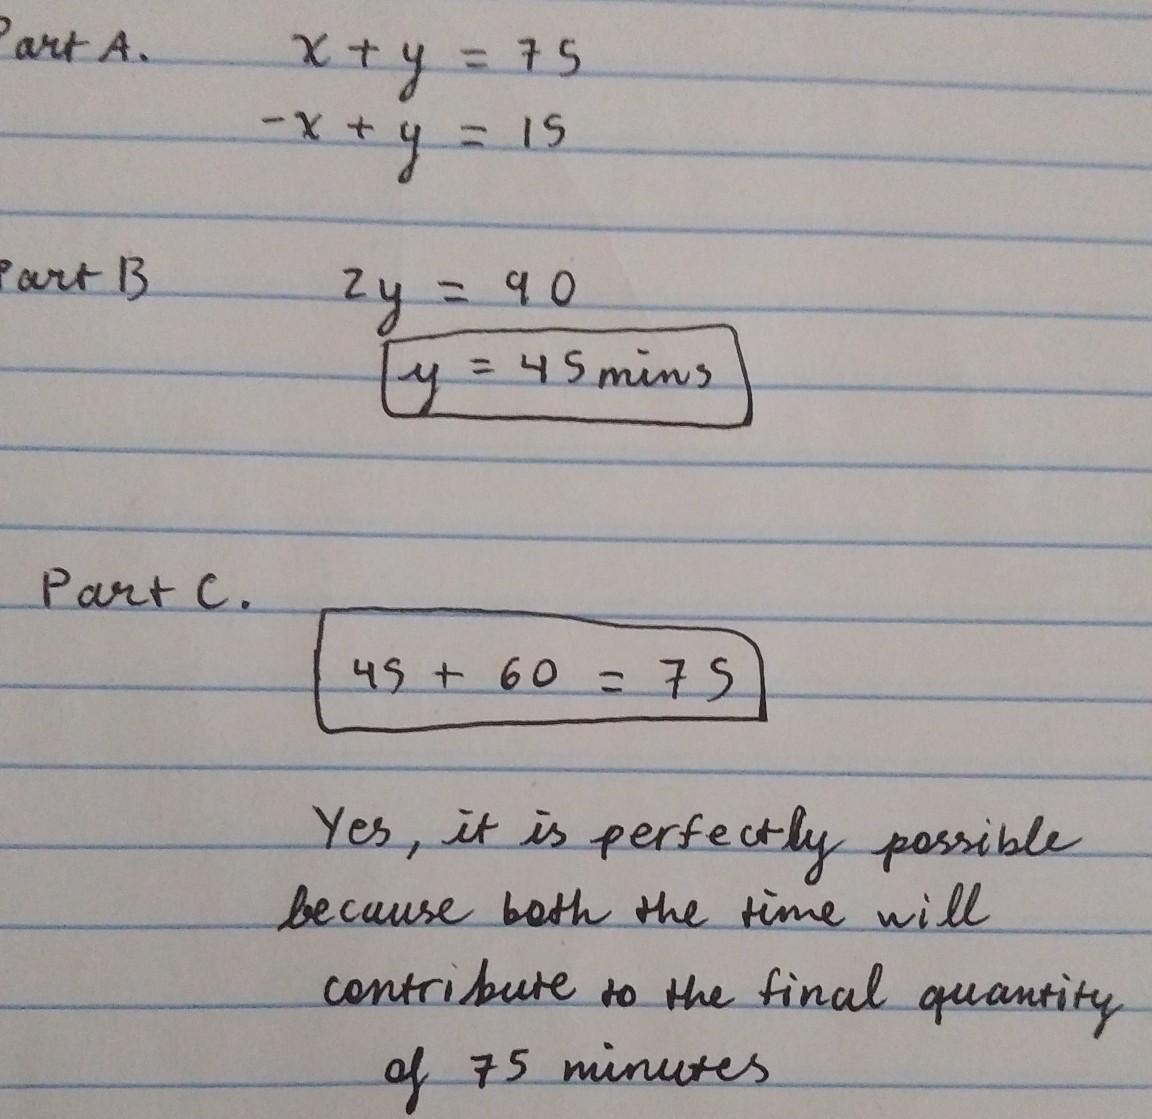 Part A. x + y = 75
-x + y = 15
Part B 2y = 90
y = 45 mins
Part C.
45 + 60 = 75
Yes, it is perfectly possible
because both the time will
contribute to the final quantity
of 75 minutes